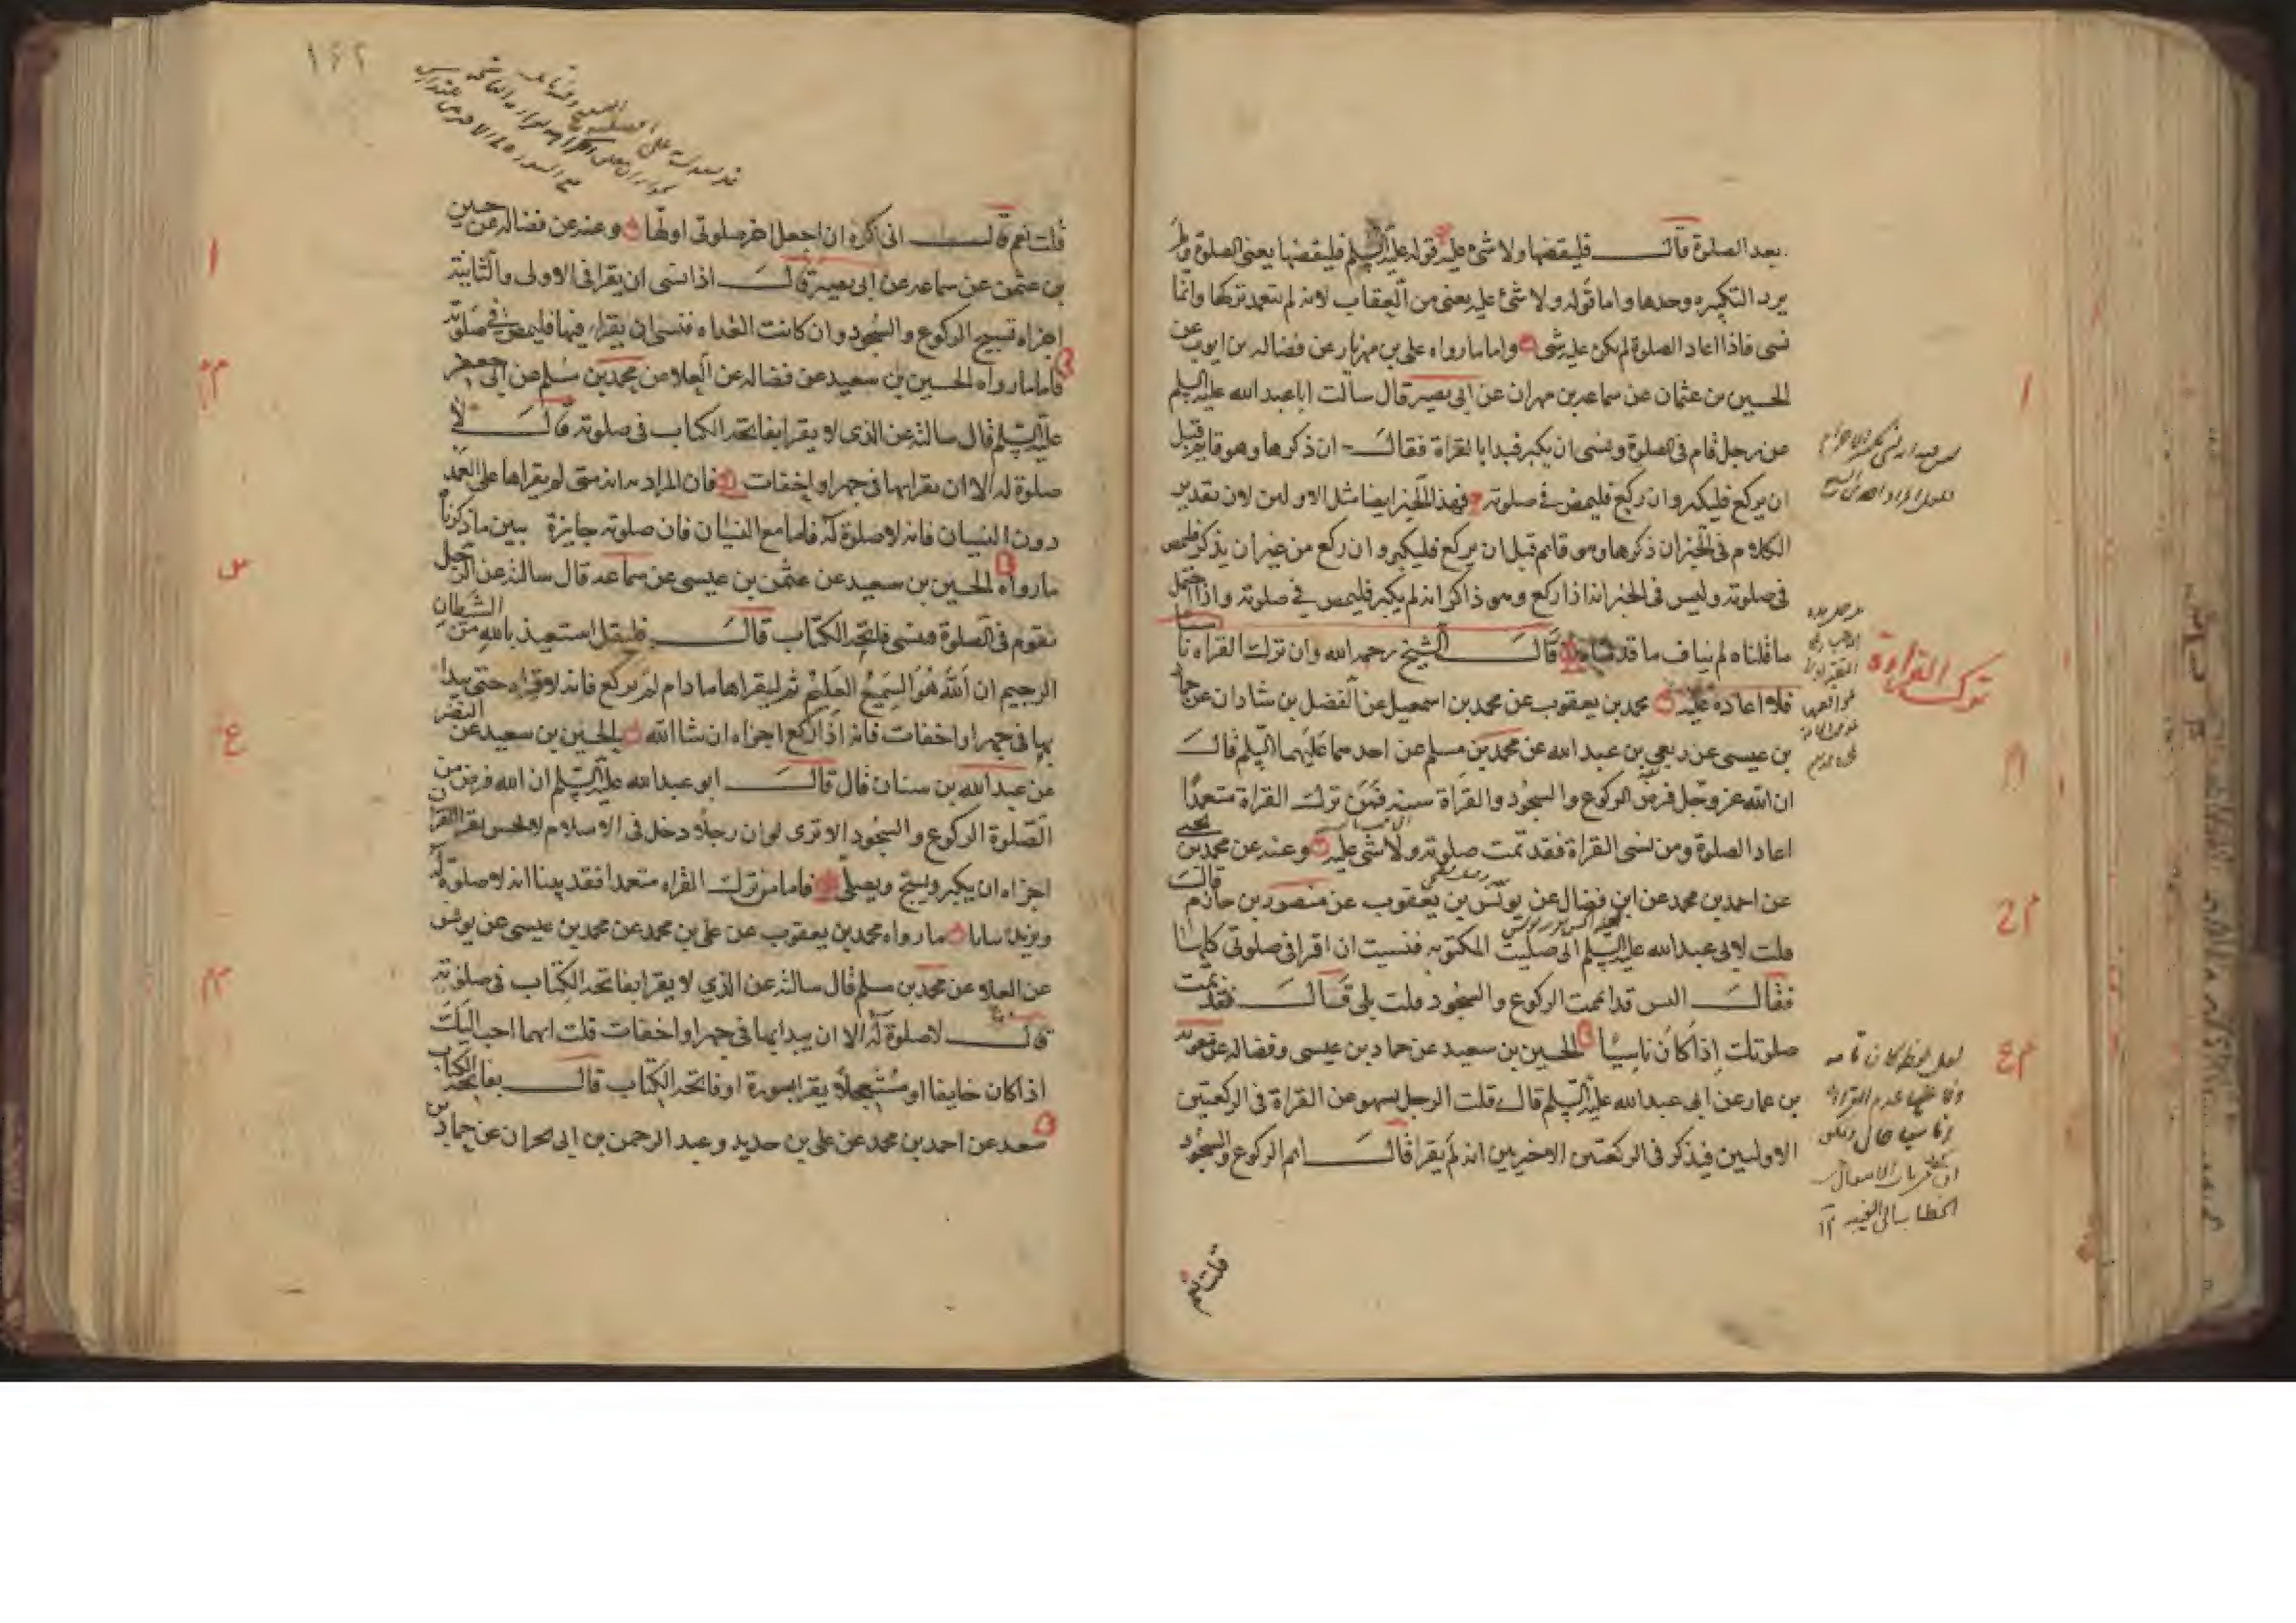 بعد الصلوة قال فليقضها ولا شئ عليه قوله عليه السلم فليقضها يعنى الصلوة ولم
يرد التكبيره وحدها واما قوله ولا شئ عليه يعنى من العقاب لانه لم يتعمد تركها وانما
نسى فاذا اعاد الصلوة لم يكن عليه شى واما ما رواه على بن مهزيار عن فضاله بن ايوب عن
الحسين بن عثمان عن سماعه بن مهران عن ابى بصير قال سالت ابا عبد الله عليه السلم
عن رجل قام فى الصلوة ونسى ان يكبر فبدا بالقراة فقال ان ذكرها وهو قايم قبل
ان يركع فليكبر وان ركع فليمض فى صلوته فهذا الخبر ايضا مثل الاولين لان تقدير
الكلام فى الخبر ان ذكرها وهو قايم قبل ان يركع فليكبر وان ركع من غير ان يذكر فليمض
فى صلوته وليس فى الخبر انه اذا ركع وهو ذاكر انه لم يكبر فليمض فى صلوته واذا احتمل
ما قلناه لم يناف ما قدمناه قال الشيخ رحمه الله وان ترك القراه ناسيا
ترك القراءة
فلا اعادة عليه محمد بن يعقوب عن محمد بن اسمعيل عن الفضل بن شاذان عن حماد
بن عيسى عن ربعى بن عبد الله عن محمد بن مسلم عن احدهما عليهما السلم قال
ان الله عز وجل فرض الركوع والسجود والقراة سنه فمن ترك القراة متعمدا
اعاد الصلوة ومن نسى القراة فقد تمت صلوته ولا شى عليه وعنه عن محمد بن يحيى
عن احمد بن محمد عن ابن فضال عن يونس بن يعقوب عن منصور بن حازم قال
قلت لابى عبد الله عليه السلم انى صليت المكتوبه فنسيت ان اقرا فى صلوتى كلها
فقال اليس قد اتممت الركوع والسجود قلت بلى قال فقد تمت
صلوتك اذا كان ناسيا الحسين بن سعيد عن حماد بن عيسى وفضاله عن معويه
بن عمار عن ابى عبد الله عليه السلم قال قلت الرجل يسهو عن القراة فى الركعتين
الاوليين فيذكر فى الركعتين الاخيرتين انه لم يقرا قال اتم الركوع والسجود
قلت نعم
١٦٢
قلت نعم قال انى اكره ان اجعل اخر صلوتى اولها وعنه عن فضاله عن حسين
بن عثمن عن سماعه عن ابى بصير قال اذا نسى ان يقرا فى الاولى والثانية
اجزاه تسبيح الركوع والسجود وان كانت الغداه فنسى ان يقرا فيها فليمض فى صلوته
فاما ما رواه الحسين بن سعيد عن فضاله عن العلا عن محمد بن مسلم عن ابى جعفر
عليه السلم قال سالته عن الذى لا يقرا بفاتحه الكتاب فى صلوته قال لا
صلوة له الا ان يقرا بها فى جهر او اخفات فان المراد به انه متى لم يقراها على العمد
دون النسيان فانه لا صلوة له فاما مع النسيان فان صلوته جايزة يبين ما ذكرناه
ما رواه الحسين بن سعيد عن عثمن بن عيسى عن سماعه قال سالته عن الرجل
يقوم فى الصلوة فينسى فاتحه الكتاب قال فليقل استعيذ بالله من الشيطان
الرجيم ان الله هو السميع العليم ثم ليقراها ما دام لم يركع فانه لا قراه حتى يبدا
بها فى جهر او اخفات فانه اذا ركع اجزاه ان شا الله الحسين بن سعيد عن النضر
عن عبد الله بن سنان قال قال ابو عبد الله عليه السلم ان الله فرض من
الصلوة الركوع والسجود الا ترى لو ان رجلا دخل فى الاسلام لا يحسن يقرا القران
اجزاه ان يكبر ويسبح ويصلى فاما من ترك القراه متعمدا فقد بينا انه لا صلوة له
ويزيده بيانا ما رواه محمد بن يعقوب عن على بن محمد عن محمد بن عيسى عن يونس
عن العلا عن محمد بن مسلم قال سالته عن الذي لا يقرا بفاتحه الكتاب فى صلوته
قال لا صلوة له الا ان يبدا بها فى جهر او اخفات قلت ايهما احب اليك
اذا كان خايفا او مستعجلا يقرا بسورة او فاتحه الكتاب قال بفاتحه الكتاب
سعد عن احمد بن محمد عن على بن حديد وعبد الرحمن بن ابى نجران عن حماد بن